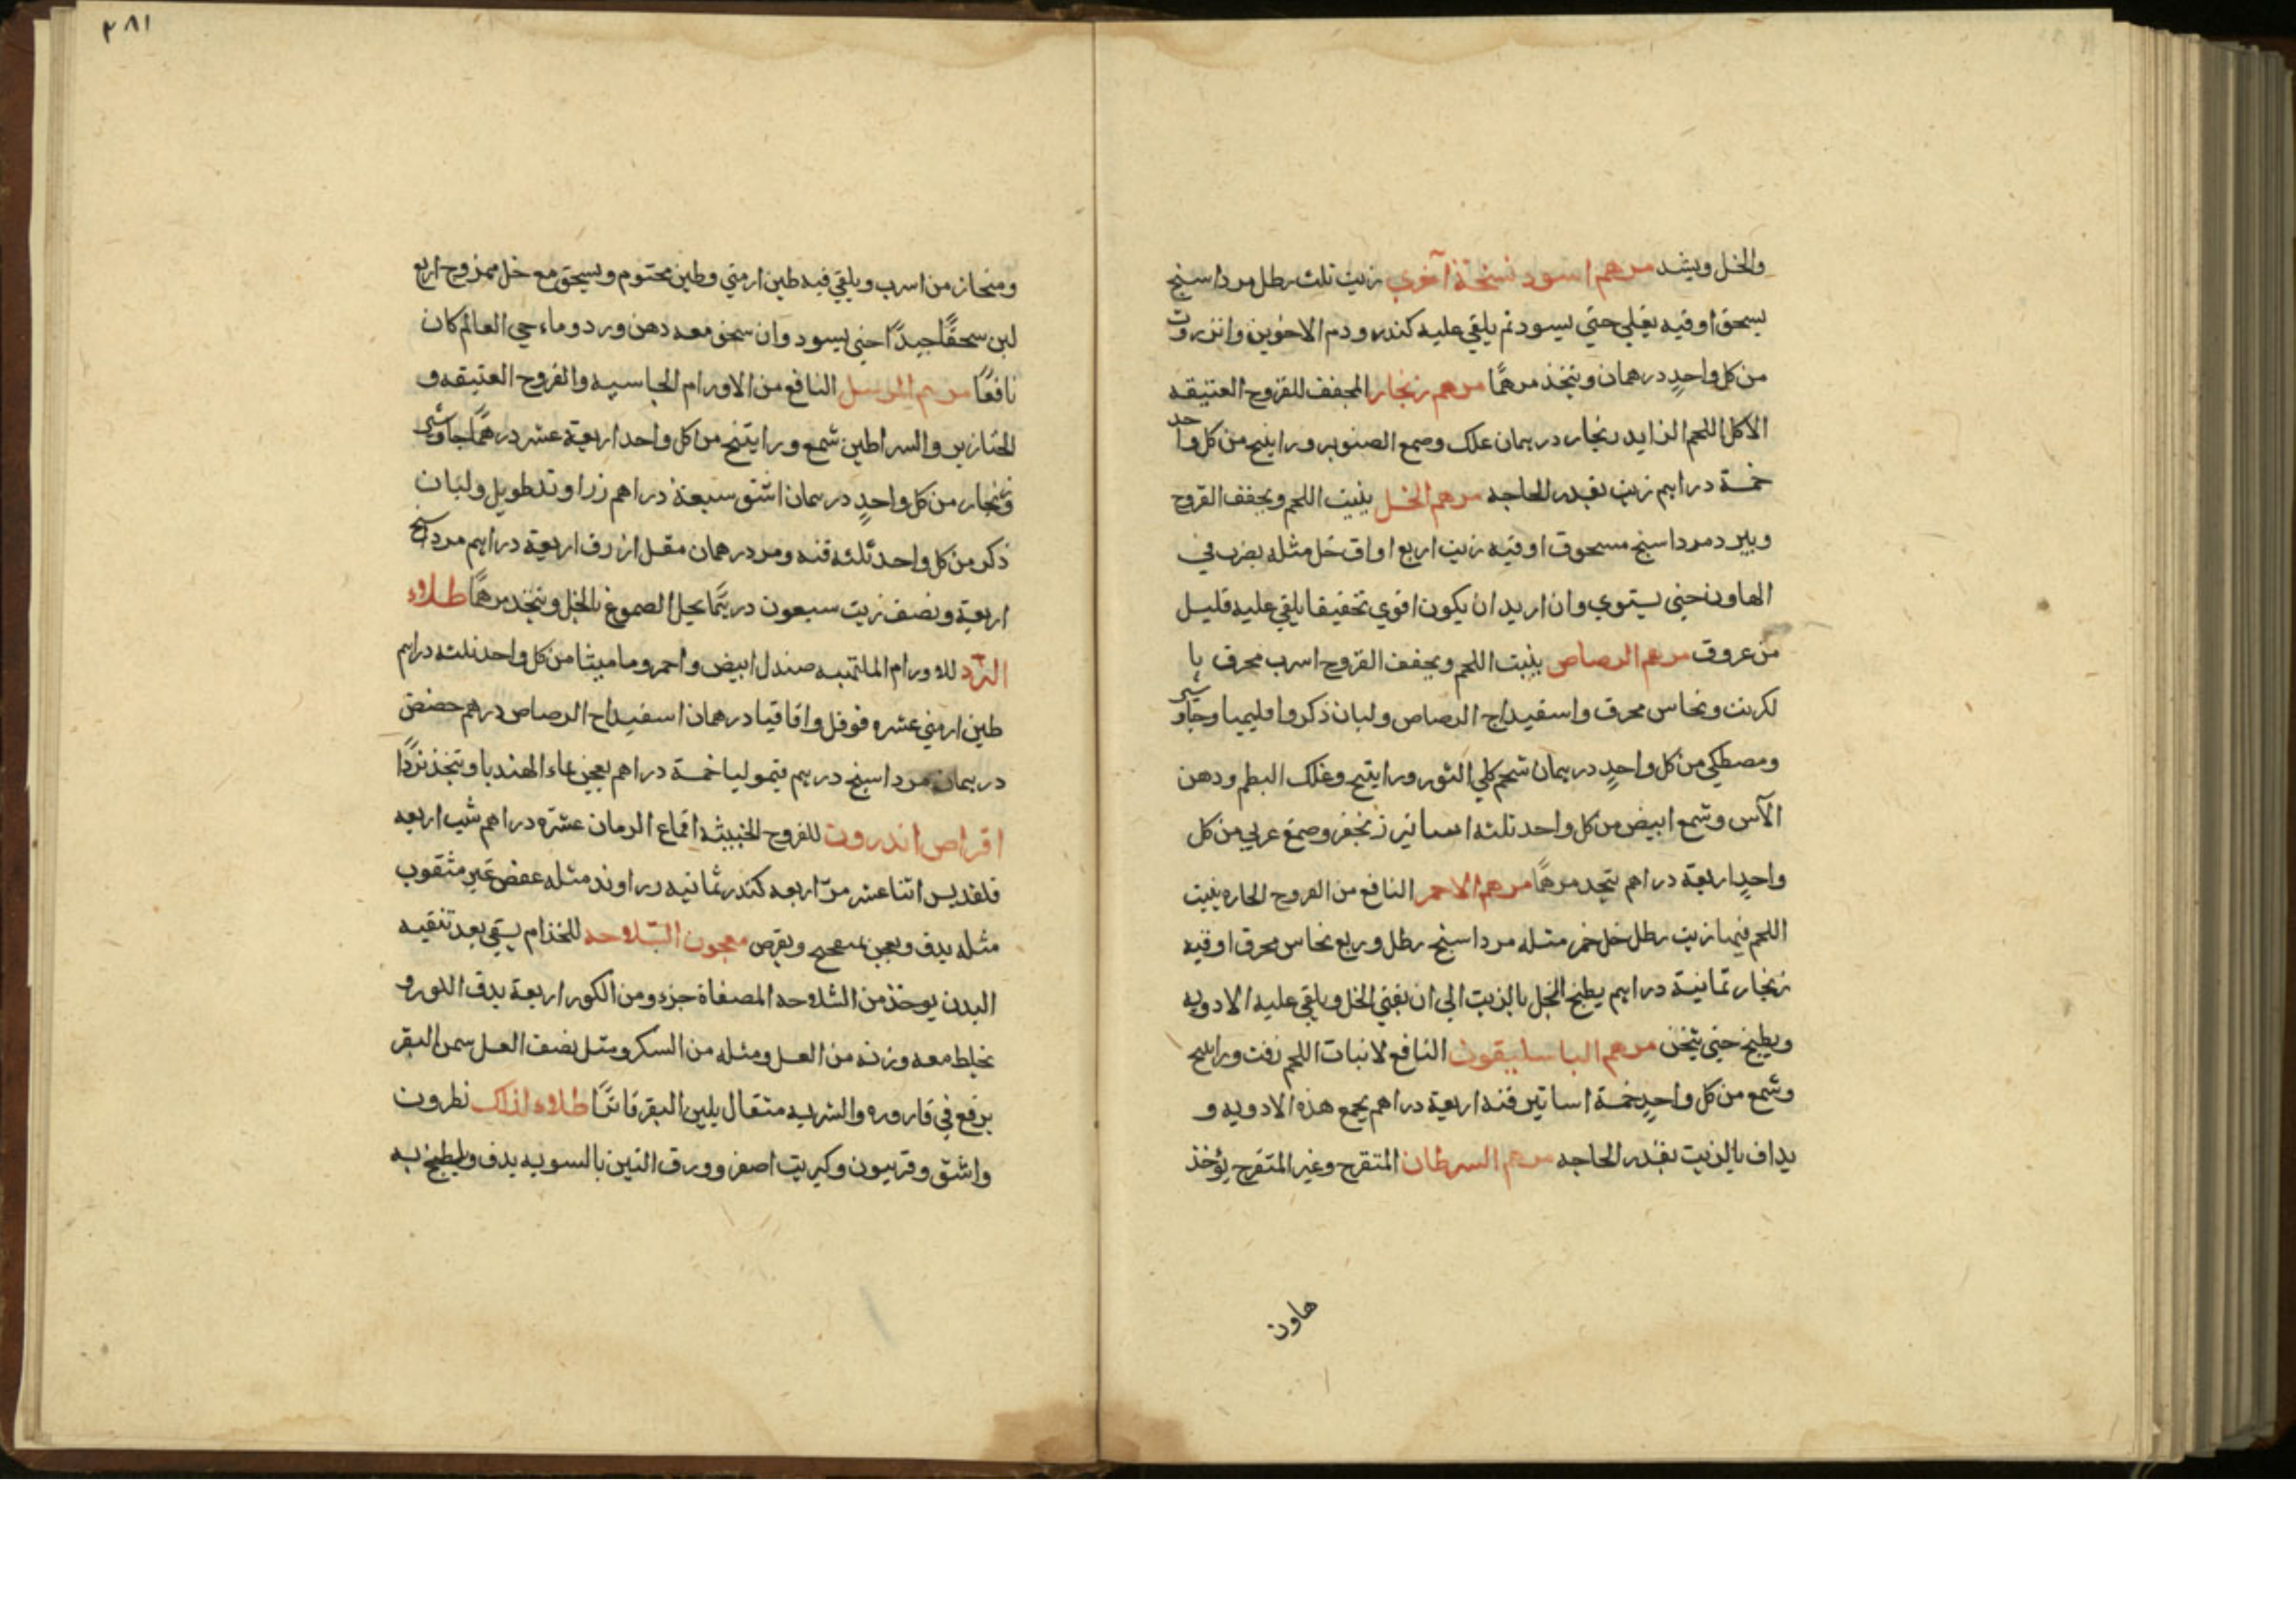 والخل ويشد مرهم اسود نسخة آخري زيت ثلث رطل مرداسنج
يسحق اوقيه يغلي حتي يسود ثم يلقي عليه كندر ودم الاخوين وانزروت
من كل واحدٍ درهمان ويتخذ مرهمًا مرهم زنجار المجفف للقروح العتيقه
الاكل اللحم الزايد زنجار درهمان علك وصمغ الصنوبر وراتينج من كل واحد
خمسة دراهم زيت بقدر الحاجه مرهم الخل ينبت اللحم ويجفف القروح
ويبرد مرداسنج مسحوق اوقيه زيت اربع اواق خل مثله يضرب في
الهاون حتي يستوي وان اريد ان يكون اقوي تجفيفا يلقي عليه قليل
من عروق مرهم الرصاص ينبت اللحم ويجفف القروح اسرب محرق با
لكربت ونحاس محرق واسفيداج الرصاص ولبان ذكر واقليميا وجاوشير
ومصطكي من كل واحدٍ درهمان شحم كلي الثور وراتينج وعلك البطم ودهن
الآس وشمع ابيض من كل واحد ثلثه اساتير زنجفر وصمغ عربي من كل
واحدٍ اربعة دراهم يتخذ مرهمًا مرهم الاحمر النافع من القروح الحاره ينبت
اللحم فيها زيت رطل خل خمر مثله مرداسنج رطل وربع نحاس محرق اوقيه
زنجار ثمانية دراهم يطبخ الخل بالزيت الي ان يفني الخل ويلقي عليه الادويه
ويطبخ حتي يثخن مرهم الباسليقون النافع لانبات اللحم زفت وراتينج
وشمع من كل واحدٍ خمسة اساتير قنه اربعة دراهم يجمع هذه الادويه و
يداف بالزيت بقدر الحاجه مرهم السرطان المتقرح وغير المتقرح يؤخذ
هاون
٢٨١
ومنحاز من اسرب ويلقي فيه طين ارمني وطين مختوم ويسحق مع خل ممزوج اربع
لبن سحقًا جيدًا حتي يسود وان سحق معه دهن ورد وماء حي العالم كان
نافعًا مرهم الرسل النافع من الاورام الجاسيه والقروح العتيقه و
الخنازير والسراطين شمع وراتينج من كل واحد اربعة عشر درهمًا جاوشير
وزنجار من كل واحدٍ درهمان اشق سبعة دراهم زراوند طويل ولبان
ذكر من كل واحد ثلثه قنه ومر درهمان مقل ازرق اربعة دراهم مرداسنج
اربعة ونصف زيت سبعون درهمًا يحل الصموغ بالخل ويتخذ مرهمًا طلاء
النرد للاورام الملتهبه صندل ابيض واحمر وماميثا من كل واحد ثلثه دراهم
طين ارمني عشره فوفل واقاقيا درهمان اسفيداج الرصاص درهم حضض
درهمان مرداسنج درهم قيموليا خمسة دراهم يعجن بماء الهندبا ويتخذ نردًا
اقراص اندروت للقروح الخبيثه اقماع الرمان عشره دراهم شب اربعه
قلقديس اثنا عشر مرّ اربعه كندر ثمانيه زراوند مثله عفص غير مثقوب
مثله يدق ويعجن ويقرص معجون الثلاحه للجذام يسقي بعد تنقيه
البدن يوخذ من الثلاحه المصفاة جزء ومن الكور اربعة يدق الكور و
يخلط معه وزنه من العسل ومثله من السكر ومثل نصف العسل سمن البقر
يرفع في قاروره والشربه مثقال بلبن البقر فاترًا طلاء لذلك نطرون
واشق وفربيون وكبريت اصفر وورق التين بالسويه يدق ويطبخ به